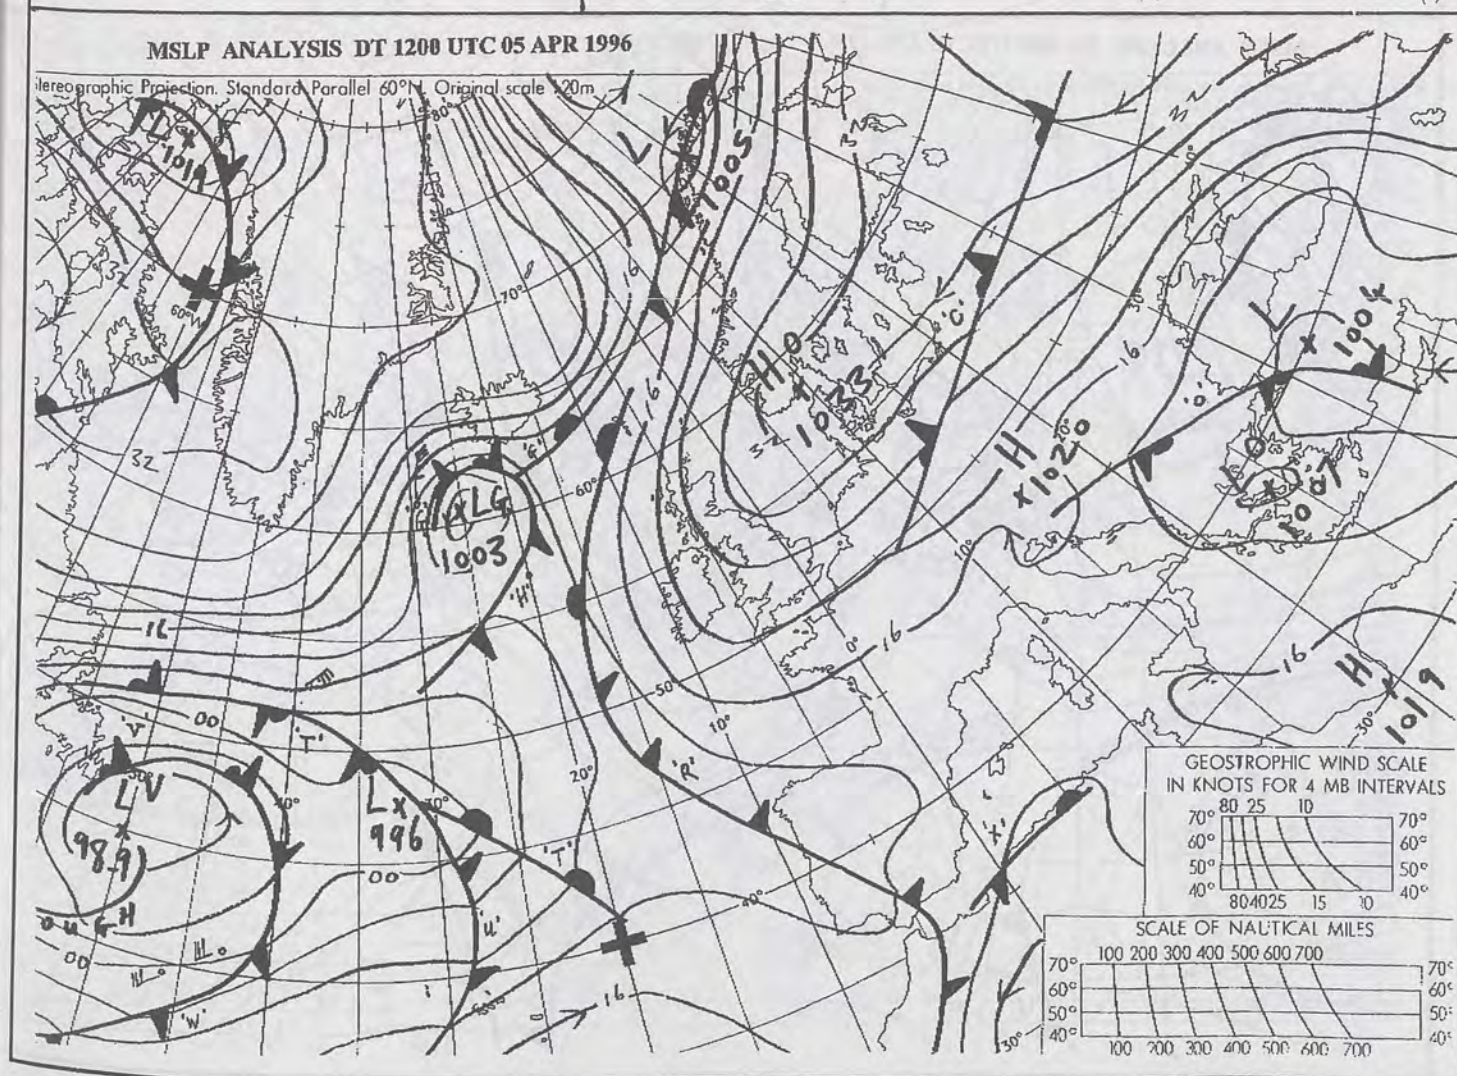 MSLP ANALYSIS DT 1200 UTC 05 APR 1996
tereographic Projection. Standard Parallel 60°N. Original scale 20m
80°
L
1019
L
1005
60°W
70°
16
'C'
L
1004
16
H
1033
16
'O'
32
'G'
H
1020
1007
60°
LG
1003
10°
'H'
16
0°
16
16
50
H
1019
10°
30°
'V'
00
'T'
'R'
20°
LV
989
L
996
'T'
'X'
00
40°
'U'
OUGH
00
'W'
16
30°
GEOSTROPHIC WIND SCALE
IN KNOTS FOR 4 MB INTERVALS
80 25 10
70° 70°
60° 60°
50° 50°
40° 40°
80 40 25 15 10
SCALE OF NAUTICAL MILES
100 200 300 400 500 600 700
70° 70°
60° 60°
50° 50°
40° 40°
100 200 300 400 500 600 700